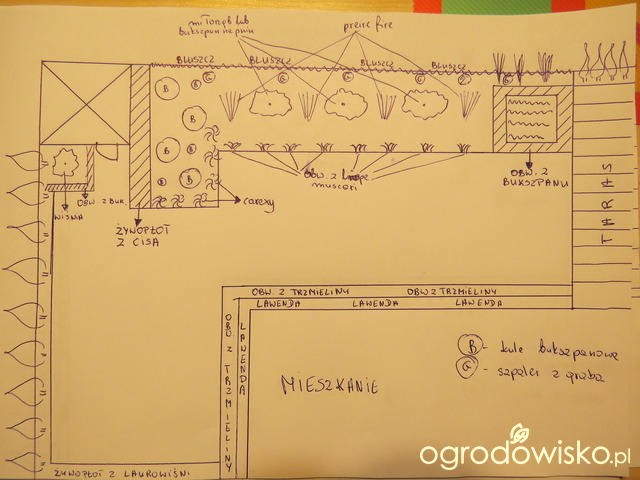 miłorząb lub
bukszpan na pniu
preire fire
BLUSZCZ
BLUSZCZ
BLUSZCZ
BLUSZCZ
G
G
G
G
G
G
B
B
B
B
B
OBW. Z
BUKSZPANU
OBW. Z
muscari
carexy
WIŚNIA
OBW. Z BUK.
ŻYWOPŁOT
Z CISA
TARAS
OBW. Z TRZMIELINY
OBW Z TRZMIELINY
LAWENDA
LAWENDA
LAWENDA
OBW Z TRZMIELINY
LAWENDA
MIESZKANIE
B - kule bukszpanowe
G - szpaler z graba
ŻYWOPŁOT Z LAUROWIŚNI
ogrodowisko.pl